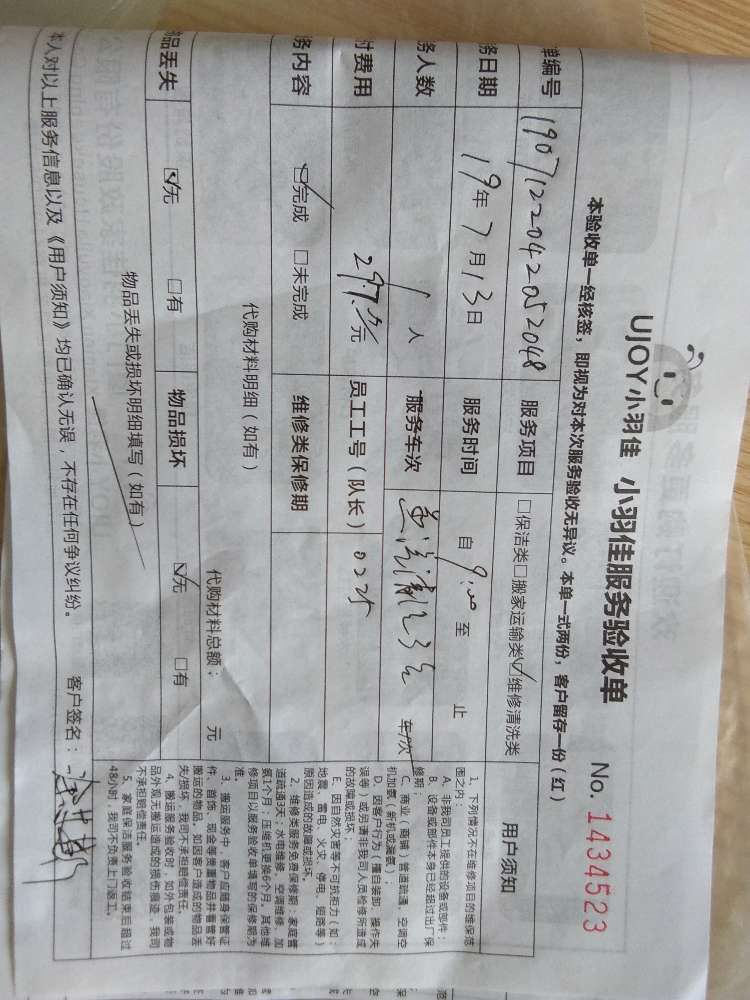 UJOY小羽佳 小羽佳服务验收单 No. 1434523
本验收单一经核签，即视为对本次服务验收无异议。本单一式两份，客户留存一份（红）
单编号 190712204205 2048 服务项目 □保洁类□搬家运输类☑维修清洗类
务日期 19年7月13日 服务时间 自 9:00 至 止
务人数 1 人 服务车次 车/次
付费用 元 员工工号（队长） 0225
务内容 ☑完成 □未完成 维修类保修期
代购材料明细（如有）
代购材料总额： 元
品丢失 ☑无 □有 物品损坏 ☑无 □有
物品丢失或损坏明细填写（如有）
本人对以上服务信息以及《用户须知》均已确认无误，不存在任何争议纠纷。 客户签名：
用户须知
1、下列情况不在维修项目的维保范
围之内：
A、非我司员工提供的设备或部件；
B、设备或部件本身已经超过出厂保
修期；
C、商业（商铺）管道疏通、空调空
机加氨（新机或漏氨）；
D、因客户行为（擅自装卸、操作失
误等）或另请非我司人员检修所造成
的故障或损坏。
E、因自然灾害等不可抗拒力（如：
地震、雷电、火灾、停电、短路等）
原因造成的故障或损坏。
2、维修类服务免费保修期：家庭管
道疏通3天；水电维修、空调维修、加
氨1个月；压缩机更换6个月。其他维
修项目以服务验收单填写的保修期为
准。
3、搬运服务中，客户应随身保管证
件、首饰、现金等贵重物品并看管好
搬运的物品，如因客户造成的物品丢
失/损坏，我司不承担赔偿责任。
4、搬运服务验收时，如外包装或物
品外观无搬运造成的损伤痕迹，我司
不承担赔偿责任。
5、家庭保洁服务验收结束后超过
48小时，我司不负责上门返工。